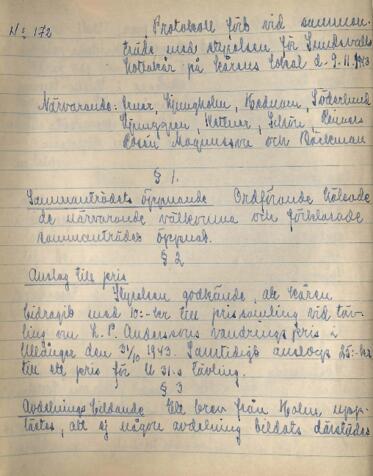 No 172
Protokoll förb vid samman-
träde med styrelsen för Sundsvalls
på Kårens lokal d. 9.11.1943
Närvarande: Ljungholm, Hedman, Söderlund
Ljunggren, Schön,
Rosén Magnusson och Bäckman
§ 1.
Sammanträdets öppnande Ordförande hälsade
de närvarande välkomna och förklarade
sammanträdet öppnat.
§ 2
Anslag till pris
Styrelsen godkände, att kåren
bidragit med 10:- kr till prissamling vid täv-
ling om K. P. Anderssons vandringspris i
Ullånger den 31/10 1943. Samtidigt anslogs 25:- kr
till ett pris för U 31.s tävling.
§ 3
Avdelnings bildande Ett brev från Holm upp-
lästes, att ej någon avdelning bildats därstädes